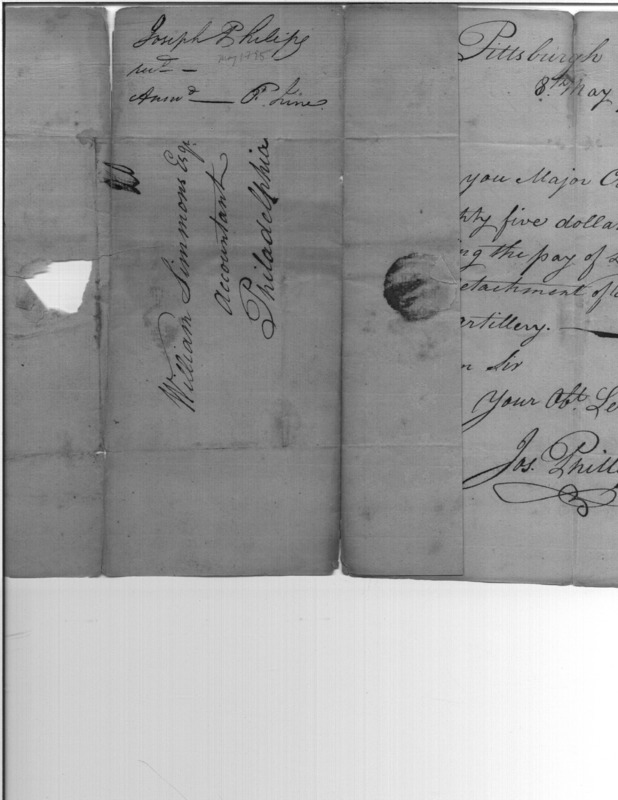 Joseph Philips
May 1795
recd —
Answd — 8th June.
William Simmons Esqr.
Accountant
Philadelphia
Pittsburgh
8th May
you Major
hty five dolla
ng the pay of
etachment of
rtillery. —
n Sir
Your Obt Se
Jos. Phill